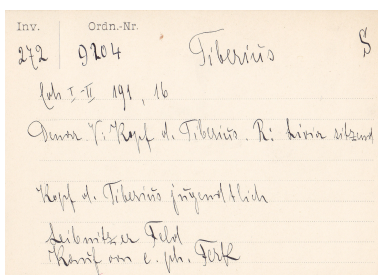 Inv. Ordn.-Nr.
272 9204 Tiberius S
Coh I-II 191, 16
Denar V: Kopf d. Tiberius. R: Livia sitzend
Kopf d. Tiberius jugendtlich
Leibnitzer Feld
Kauf von e. ph. Ferk